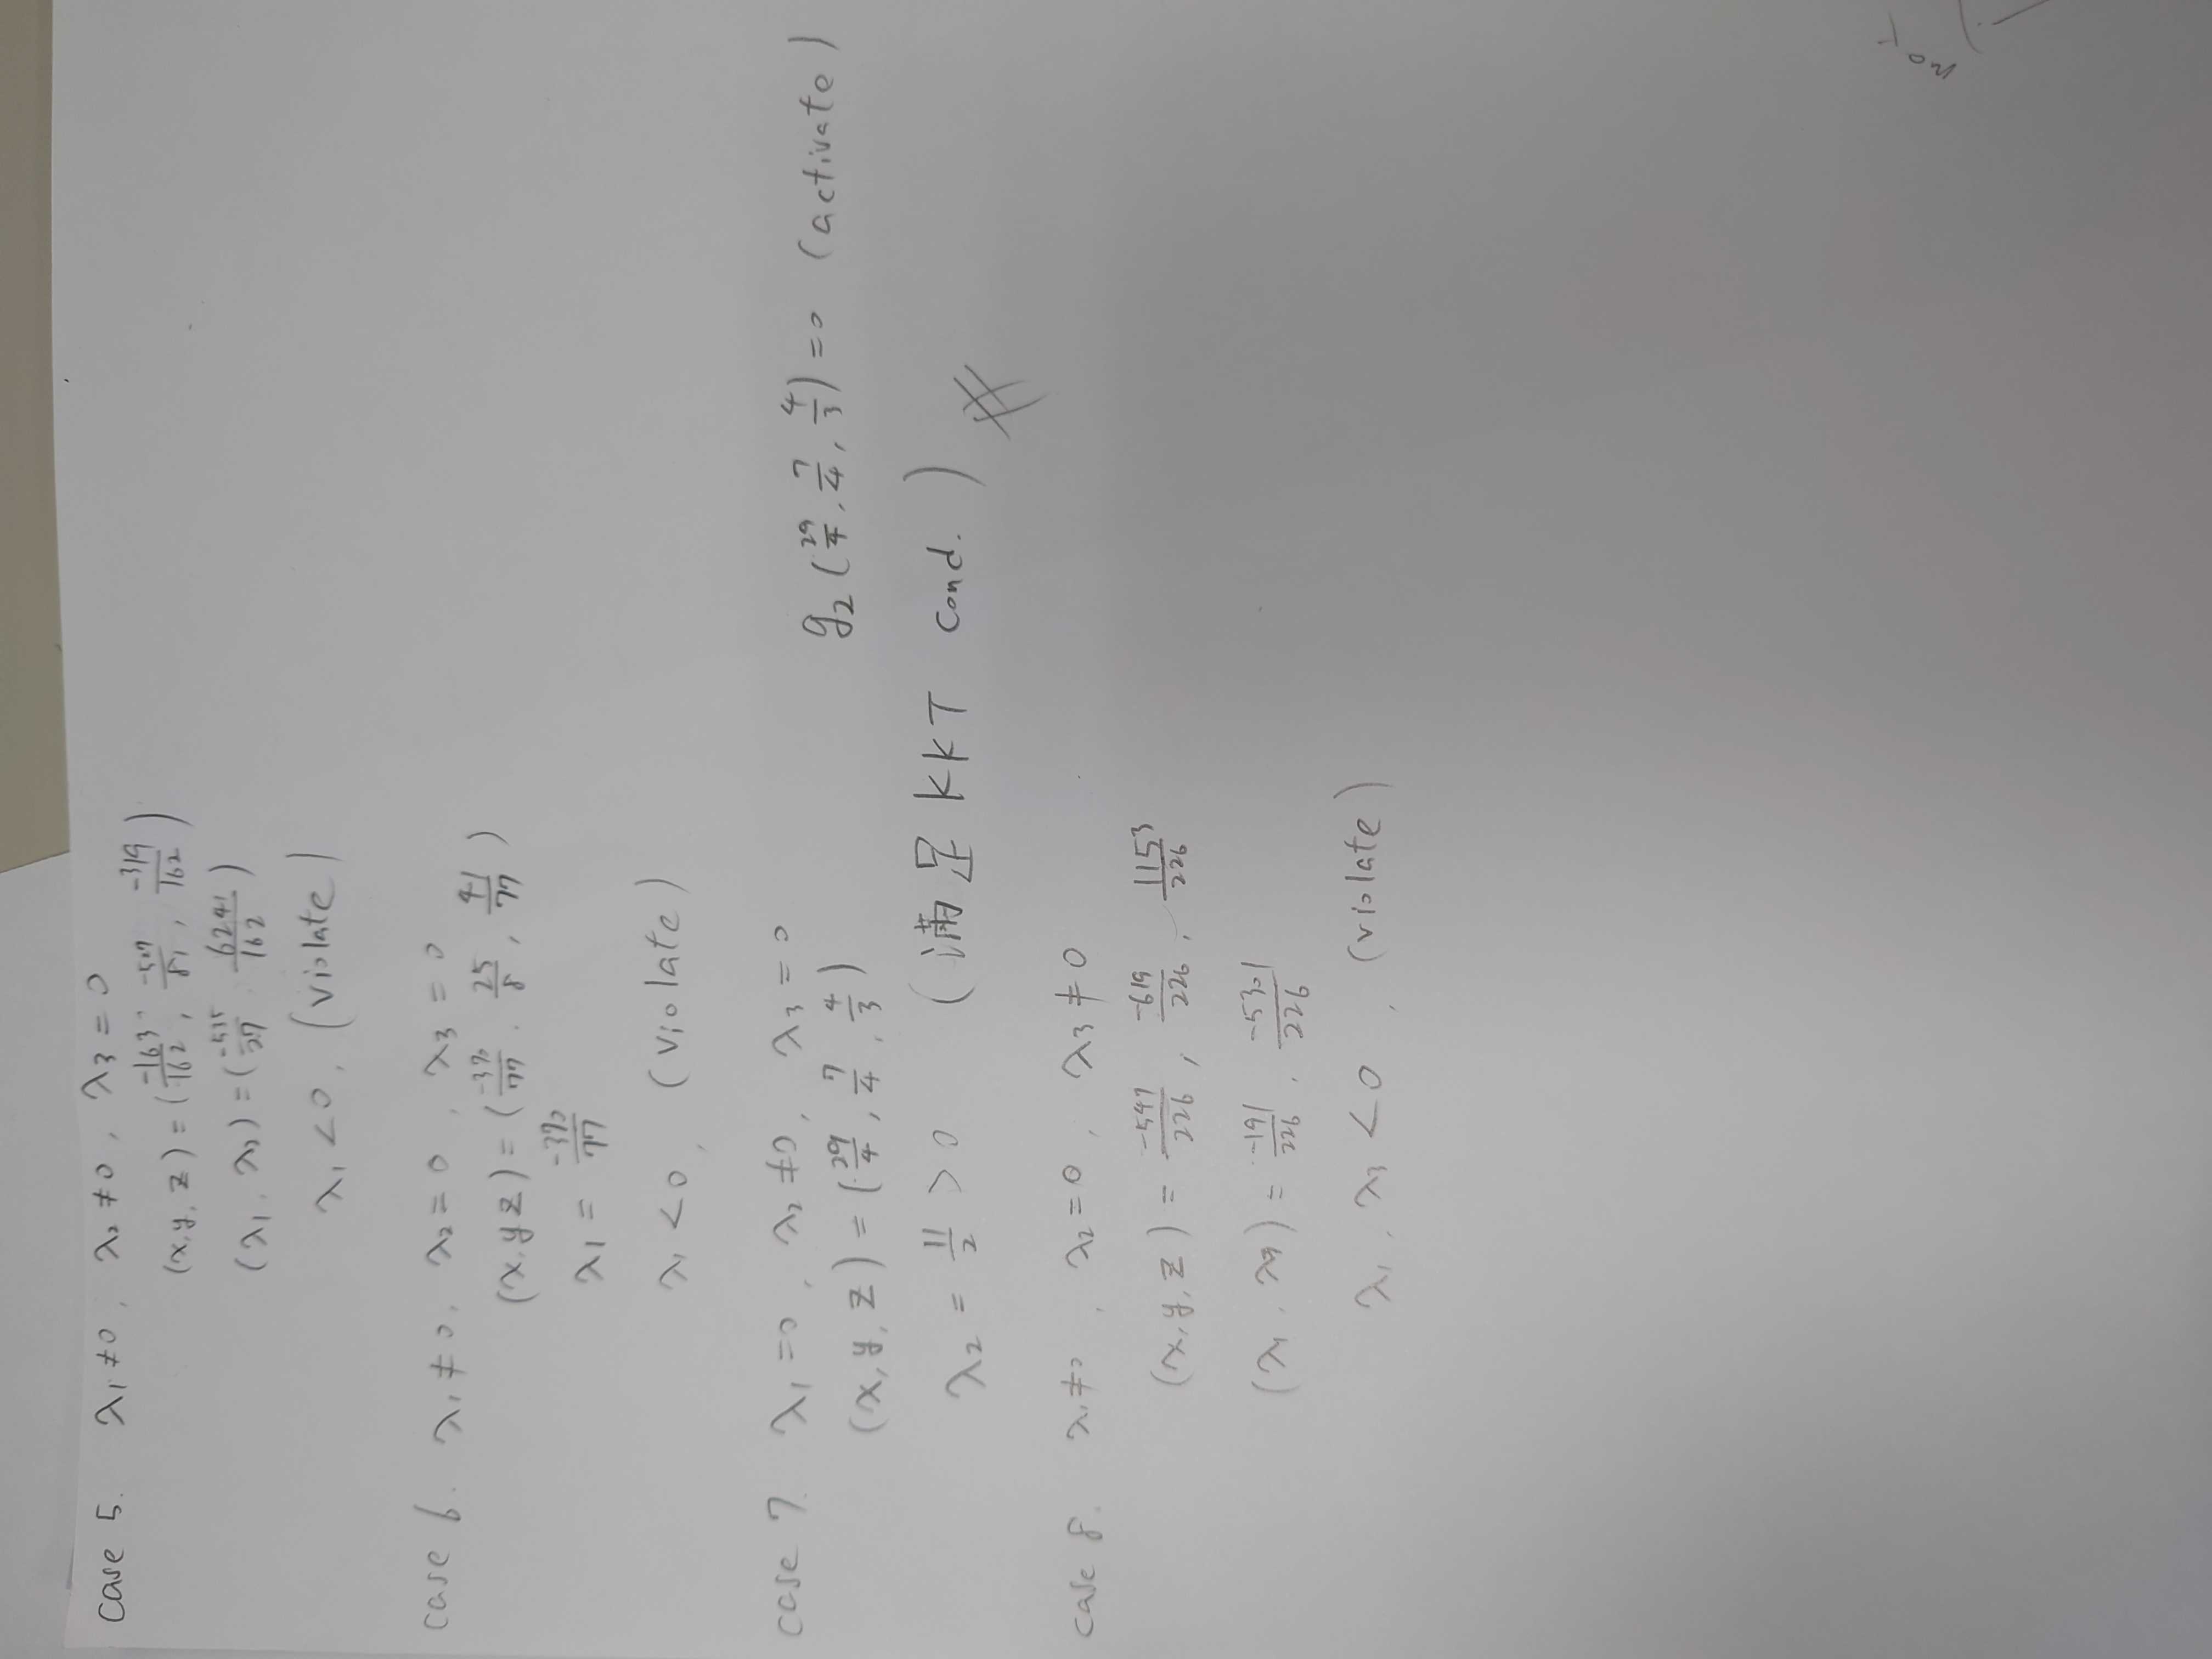 case 5. λ₁≠0, λ₂≠0, λ₃=0
(x,y,z)=(-163/162, -507/81, -319/162)
(λ₁,λ₂)=(-515/27, 6241/162)
λ₁<0, (violate)
case 6. λ₁≠0, λ₂=0, λ₃=0
(x,y,z)=(-390/77, 25/8, 41/77)
λ₁ = -390/77
λ₁<0, (violate)
case 7. λ₁=0, λ₂≠0, λ₃=0
(x,y,z)=(29/4, 7/4, 4/3) g₂(29/4, 7/4, 4/3)=0 (activate)
λ₂ = 11/2 >0 (満足 KKT cond.)
case 8. λ₁≠0, λ₂=0, λ₃≠0
(x,y,z) = -547/226, -619/226, 1153/226
(λ₁, λ₃) = -191/226, -5301/226
λ₁, λ₃ <0, (violate)